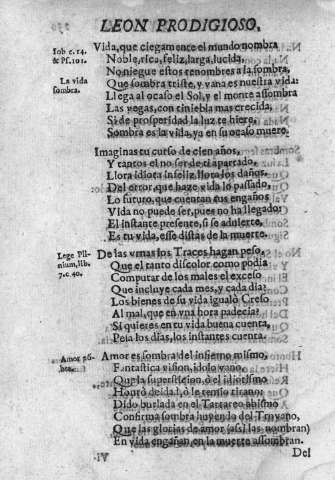 LEON PRODIGIOSO,
Iob c. 14.
& Ps. 101.
La vida
sombra.
Vida, que ciegamente el mundo nombra
Noble, rica, feliz, larga, lucida,
No niegue estos renombres a la sombra,
Que sombra triste, y vana es nuestra vida:
Llega al ocaso el Sol, y el monte assombra
Las vegas, con tiniebla mas crecida,
Si de prosperidad la luz te hiere,
Sombra es la vida, ya en su ocaso muere.
Imaginas tu curso de cien años,
Y tantos el no ser de ti apartado,
Llora idiota infeliz, llora los daños,
Del error, que haze vida lo passado,
Lo futuro, que cuentan tus engaños
Vida no puede ser, pues no ha llegado:
El instante presente, si se advierte,
Es tu vida, esse distas de la muerte.
Lege Pli-
nium, lib.
7. c. 40.
De las vrnas los Traces hagan peso,
Que el tanto discolor como podia
Computar de los males el excesso
Que incluye cada mes, y cada dia?
Los bienes de su vida igualò Creso
Al mal, que en vna hora padecia?
Si quieres en tu vida buena cuenta,
Pesa los dias, los instantes cuenta.
Amor
Amor es sombra del infierno mismo,
Fantastica vision, idolo vano,
Que la supersticion, ò el idiotismo
Honrò deidad, ò le temio tirano:
Dido burlada en el Tartareo abismo
Confirma sombra huyendo del Troyano,
Que las glorias de amor (assi las nombran)
En vida engañan, en la muerte assombran.
Del